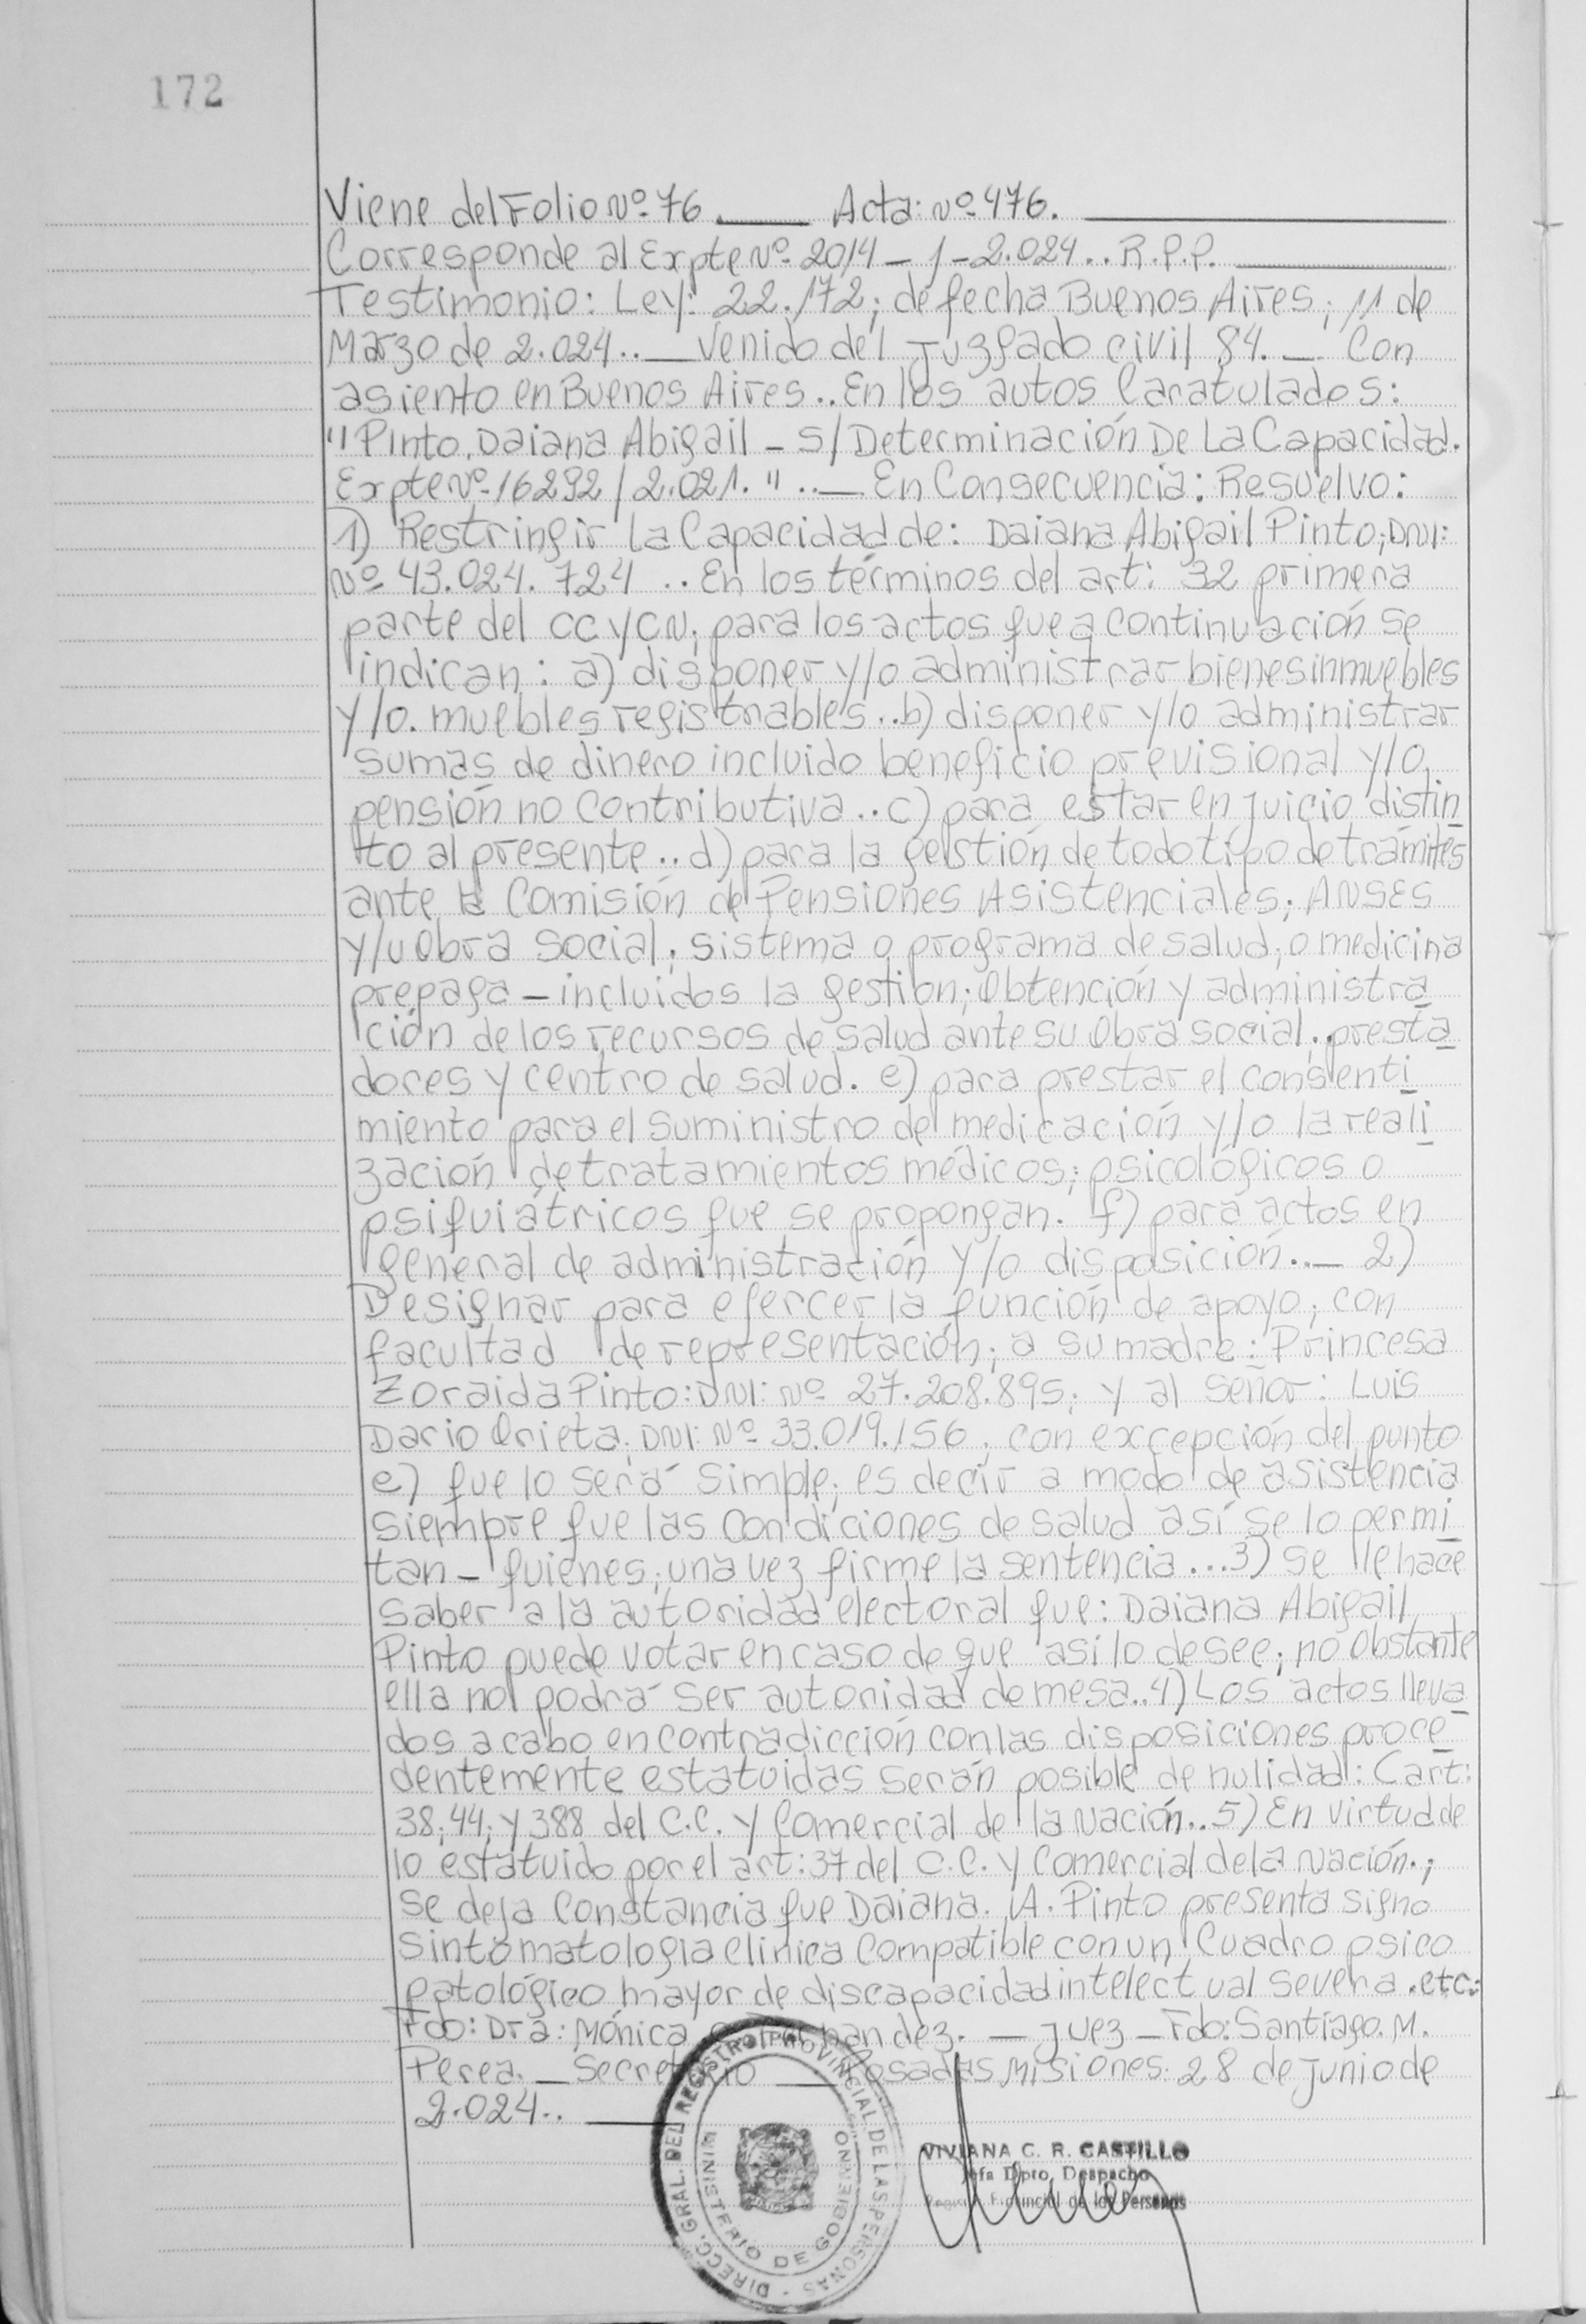 172
Viene del Folio Nº 76. Acta: Nº 476.
Corresponde al Expte Nº 2014-1-2.024.. R.P.P.
Testimonio: Ley: 22.172; de fecha Buenos Aires; 11 de
Marzo de 2.024.. — Venido del Juzgado civil 84. — Con
asiento en Buenos Aires.. En los autos Caratulados:
"Pinto, Daiana Abigail - S/ Determinación De La Capacidad.
Expte Nº 16292/2.021." ..— En Consecuencia: Resuelvo:
1) Restringir la Capacidad de: Daiana Abigail Pinto; DNI:
Nº 43.024.724 .. En los términos del art: 32 primera
parte del CCYCN; para los actos que a continuación se
indican: a) disponer y/o administrar bienes inmuebles
y/o. muebles registrables.. b) disponer y/o administrar
sumas de dinero incluido beneficio previsional y/o
pensión no contributiva.. c) para estar en juicio distin
to al presente.. d) para la gestión de todo tipo de trámites
ante la Comisión de Pensiones Asistenciales; ANSES
y/u Obra Social; sistema o programa de salud; o medicina
prepaga - incluidos la gestion; Obtención y administra
ción de los recursos de salud ante su Obra social; presta
dores y centro de salud. e) para prestar el consenti
miento para el suministro de medicación y/o la reali
zación de tratamientos médicos; psicológicos o
psiquiátricos que se propongan. f) para actos en
general de administración y/o disposición. .— 2)
Designar para ejercer la función de apoyo; con
facultad de representación; a su madre: Princesa
Zoraida Pinto: DNI: Nº 27.208.895; y al señor: Luis
Dario Orieta; DNI: Nº 33.019.156; con excepción del punto
e) que lo será simple; es decir a modo de asistencia
siempre que las condiciones de salud así se lo permi
tan - quienes; una vez firme la sentencia ... 3) se le hace
saber a la autoridad electoral que: Daiana Abigail
Pinto puede votar en caso de que asi lo desee; no obstante
ella no podrá ser autoridad de mesa.. 4) Los actos lleva
dos a cabo en contradicción con las disposiciones proce
dentemente estatuidas serán posible de nulidad: Cart:
38; 44; y 388 del C.C. y Comercial de la Nación.. 5) En virtud de
lo estatuido por el art: 37 del C.C. y Comercial de la Nación.;
se deja Constancia que Daiana. A. Pinto presenta signo
Sintomatologia clinica Compatible con un Cuadro psico
patológico mayor de discapacidad intelectual severa. etc:
Fdo: Dra: Mónica — Juez — Fdo: Santiago. M.
Perea. — Secretario — Posadas Misiones: 28 de junio de
2.024..
DIRECC. GRAL. DEL REGISTRO PROVINCIAL DE LAS PERSONAS
MINISTERIO DE GOBIERNO
VIVIANA C. R. CASTILLO
Jefa Dpto. Despacho
Registro Provincial de las Personas